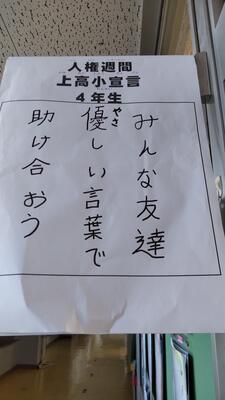 人権週間
上高小宣言
4年生
みんな友達
優しい言葉で
やさ
助け合おう